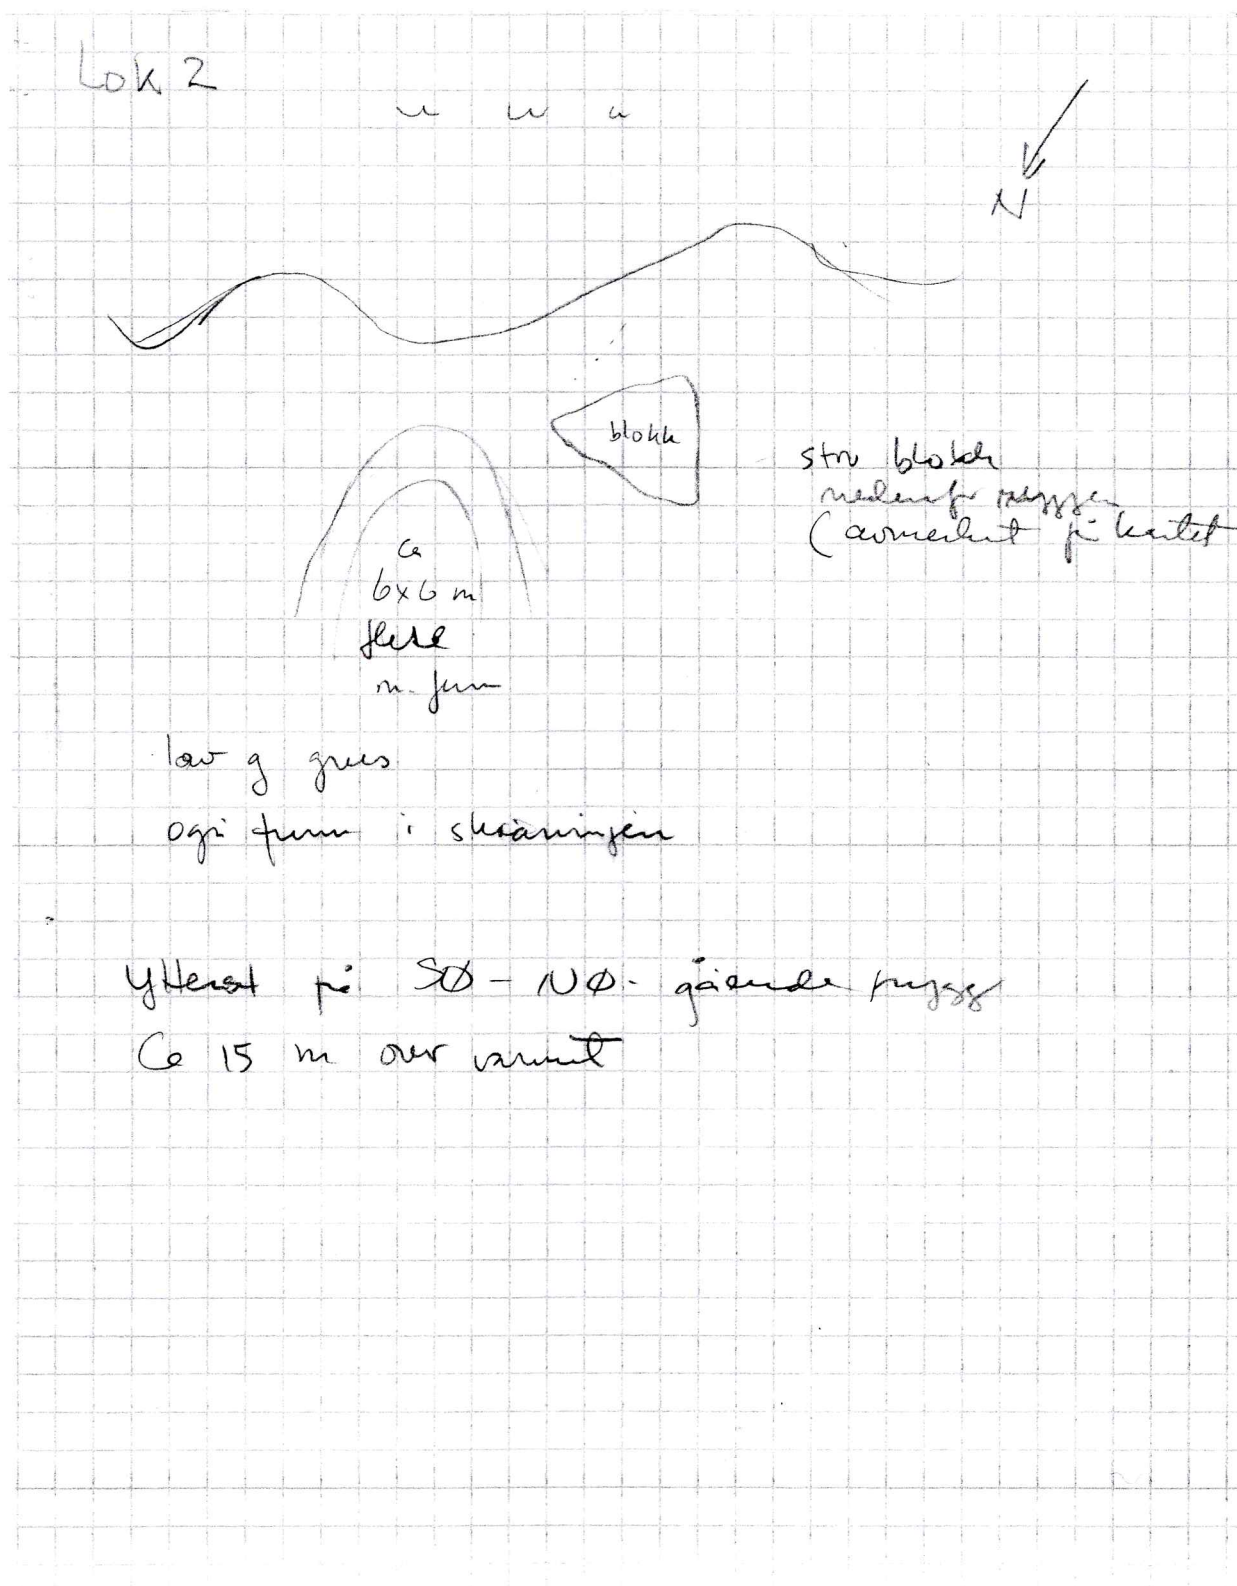 Lok 2
N
blokk
stor blokk
nedenfor ryggen
(avmerket på kartet
ca
6x6 m
flate
m. funn
lav og grus
også funn i skråningen
Ytterst på SØ - NØ - gående rygg
Ca 15 m over vannet